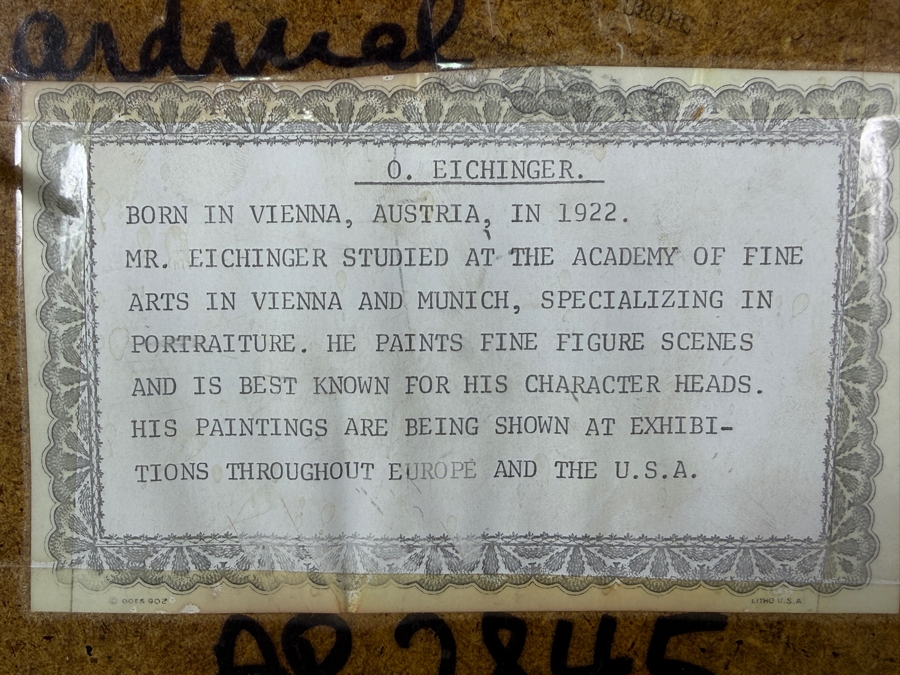 ardinal
O. EICHINGER.
BORN IN VIENNA, AUSTRIA, IN 1922.
MR. EICHINGER STUDIED AT THE ACADEMY OF FINE
ARTS IN VIENNA AND MUNICH, SPECIALIZING IN
PORTRAITURE. HE PAINTS FINE FIGURE SCENES
AND IS BEST KNOWN FOR HIS CHARACTER HEADS.
HIS PAINTINGS ARE BEING SHOWN AT EXHIBI-
TIONS THROUGHOUT EUROPE AND THE U.S.A.
© GOES 902
LITHO U.S.A.
AP 2845